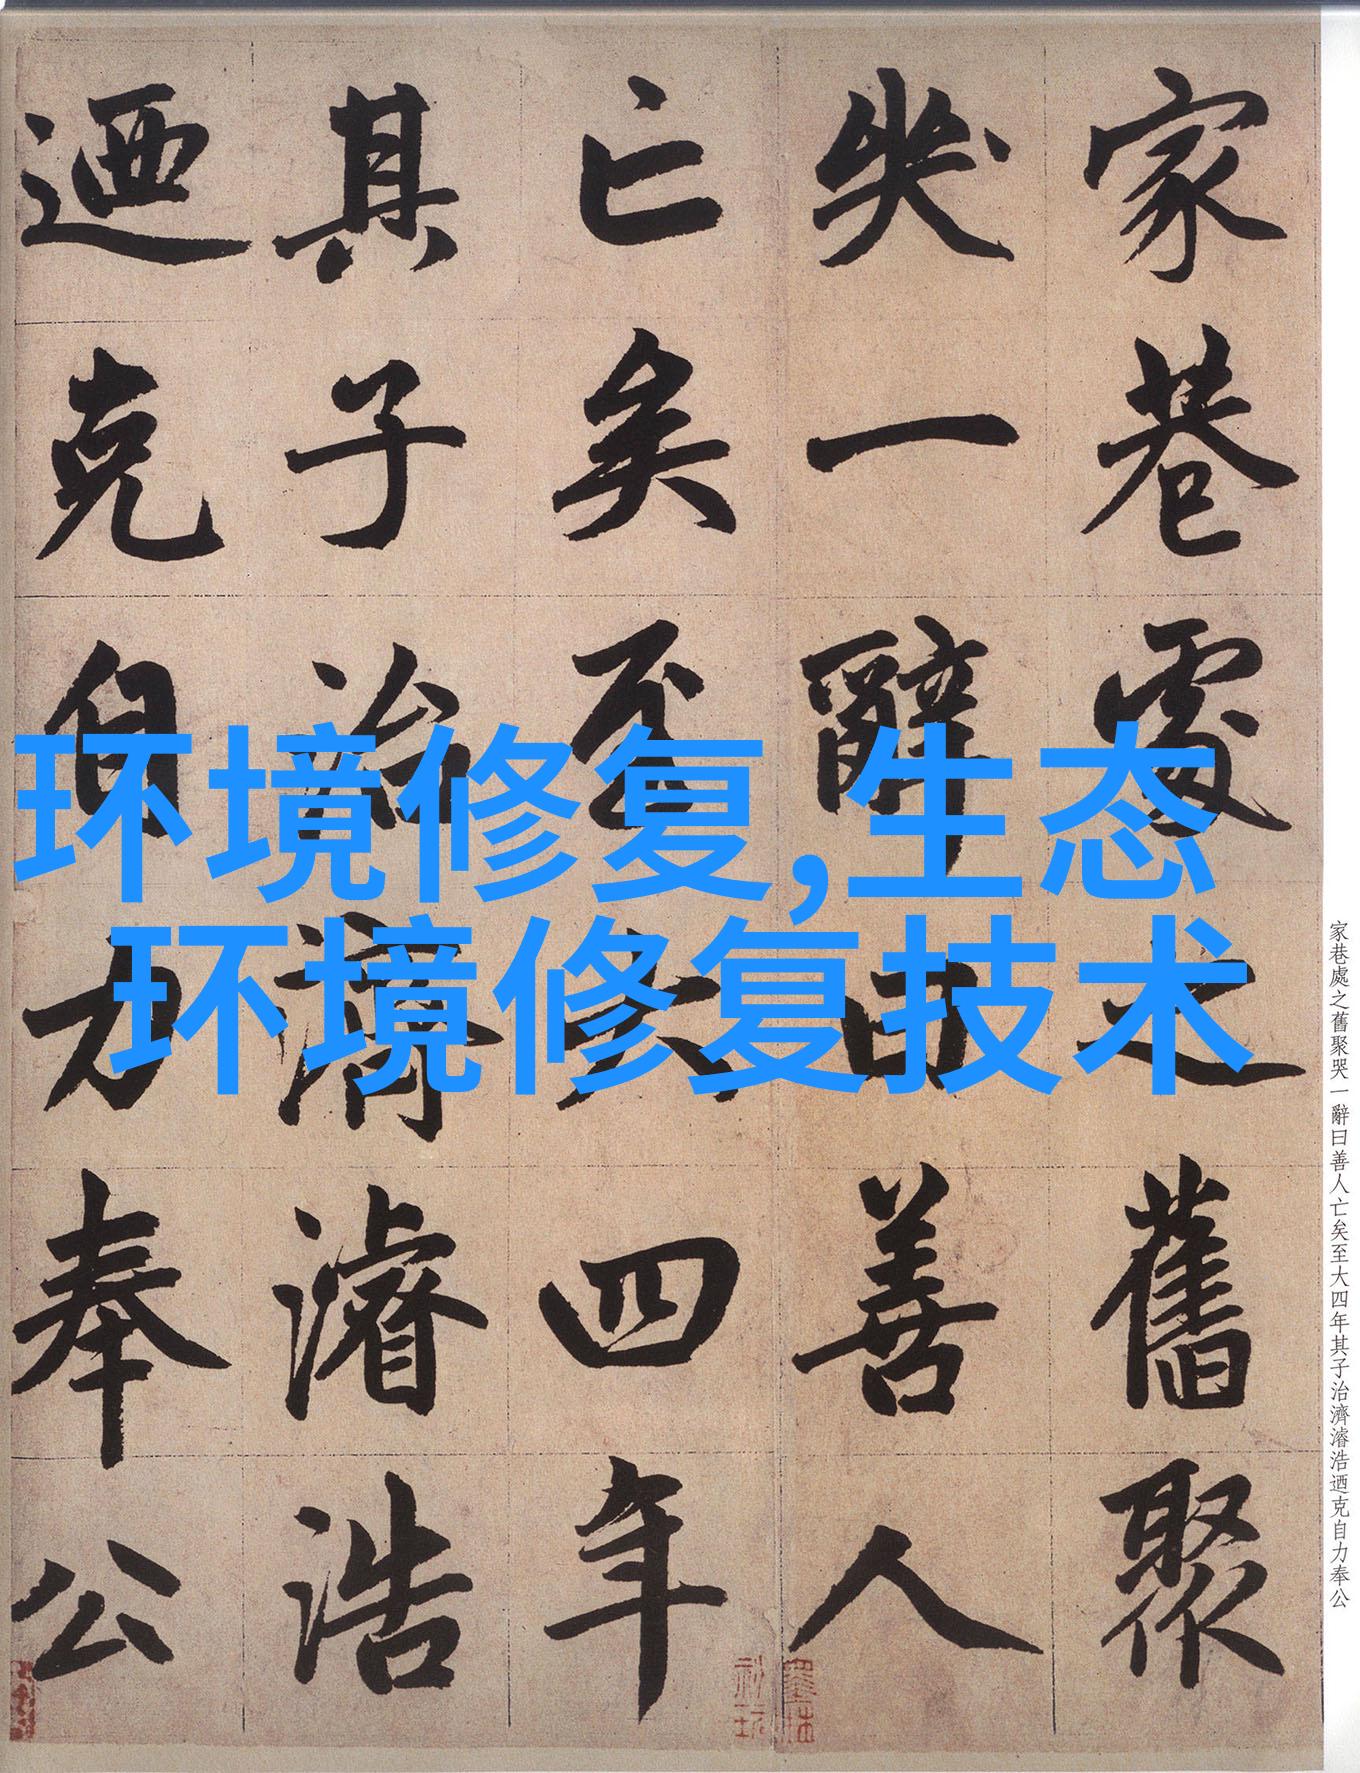 家巷處之舊聚
哭一辭曰善人
亡矣至大四年
其子治濟濬浩
迺克自力奉公
环境修复,生态
环境修复技术
家巷處之舊聚哭一辭曰善人亡矣至大四年其子治濟濬浩迺克自力奉公
墨林
秘玩